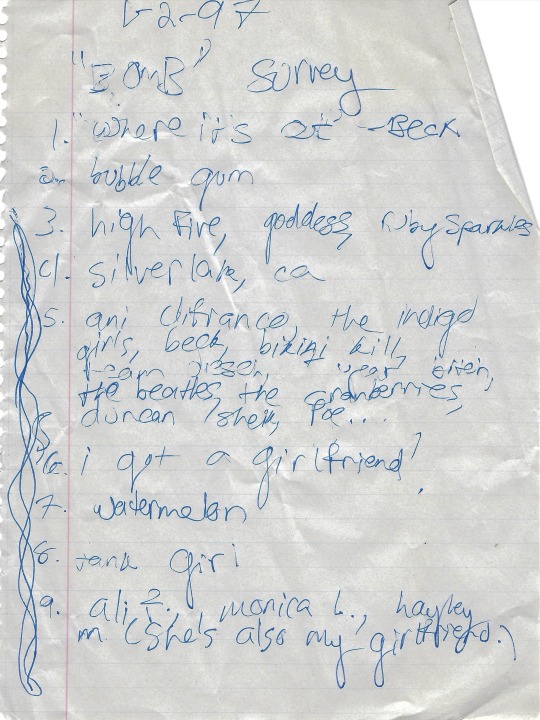 -2-97
"BOMB" Survey
1. "where it's at" - Beck
2. bubble gum
3. high Five, goddess, ruby Sparkles
4. silverlake, ca
5. ani difranco, the indigo
girls, beck, bikini kill,
team dresch, year
the beatles, the cranberries,
duncan sheik, Poe...
6. i got a girlfriend!
7. watermelon
8. tank girl
9. ali, monica L., hayley
m. (she's also my girlfriend.)